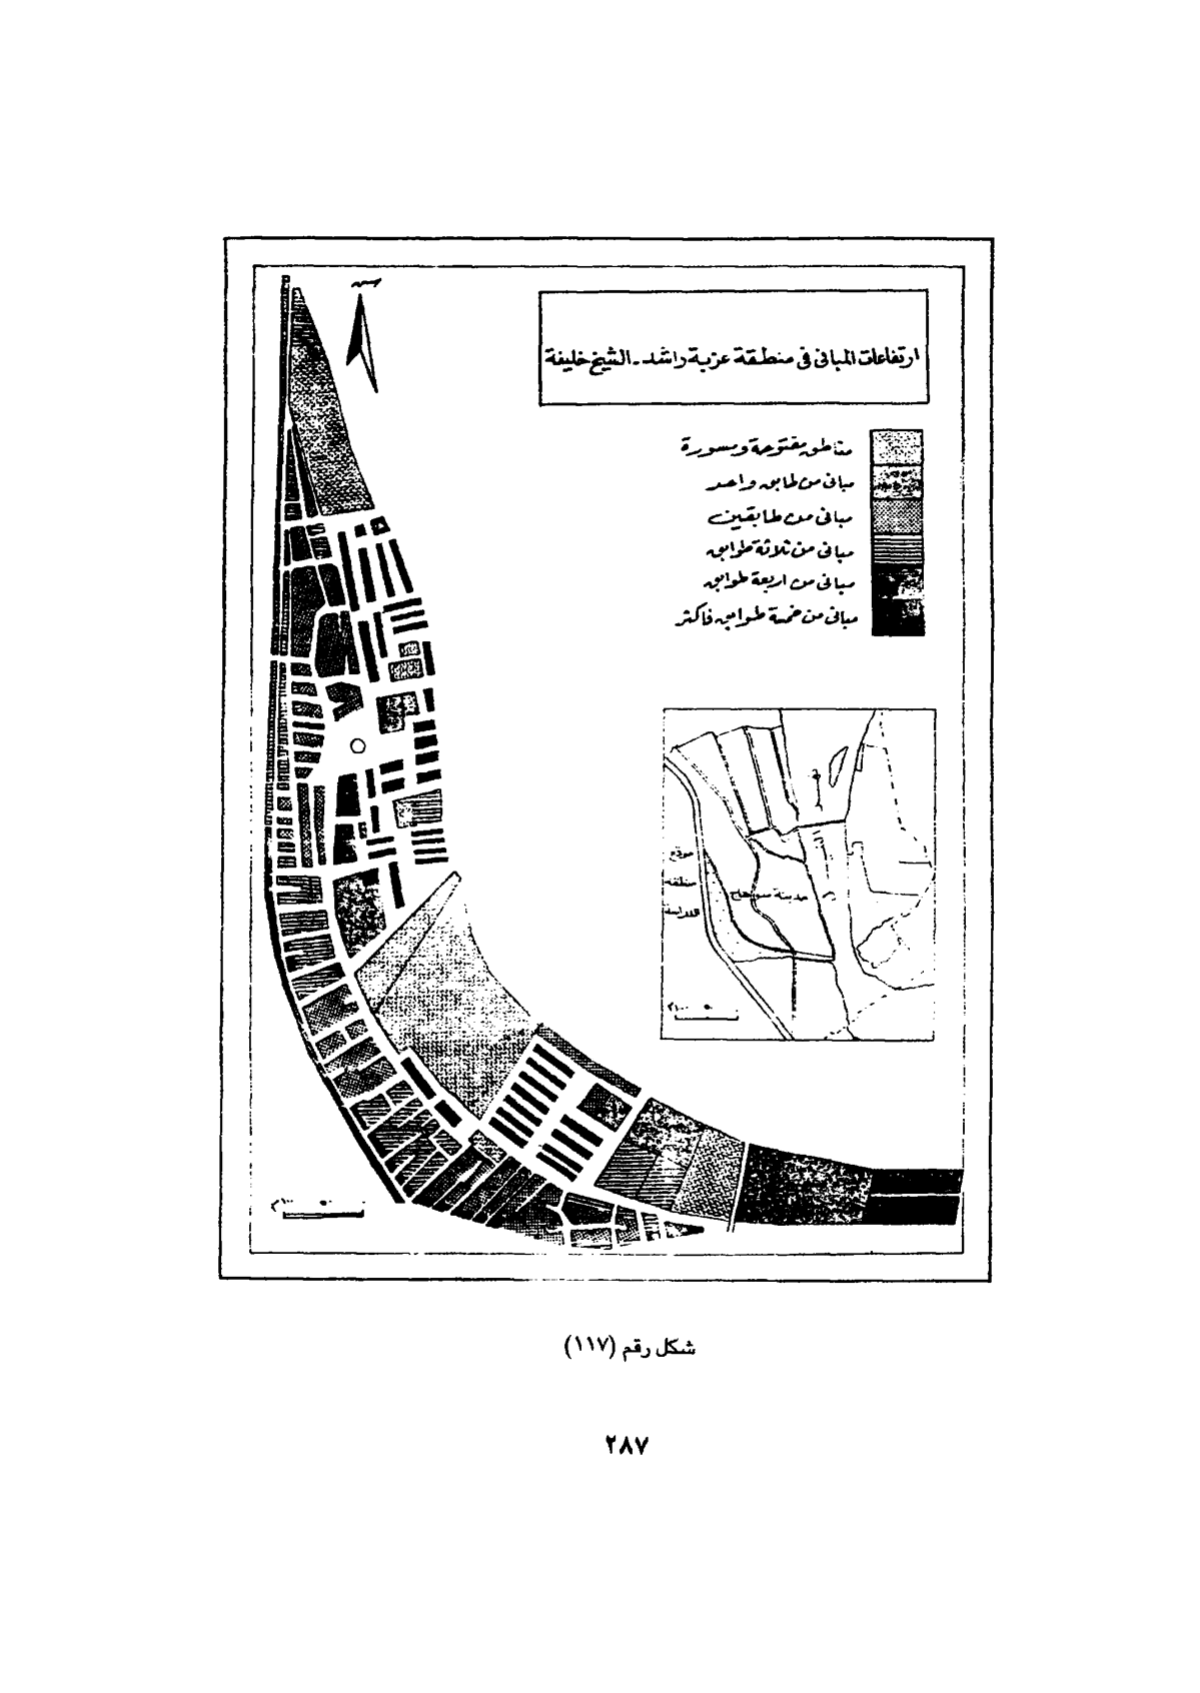 ارتفاعات المبانى فى منطقة عزبة راشد - الشيخ خليفة
مناطق مفتوحة ومسورة
مبانى من طابق واحد
مبانى من طابقين
مبانى من ثلاثة طوابق
مبانى من اربعة طوابق
مبانى من خمسة طوابق فاكثر
موقع
منطقة
الدراسة
مدينة سوهاج
شكل رقم (١١٧)
٢٨٧